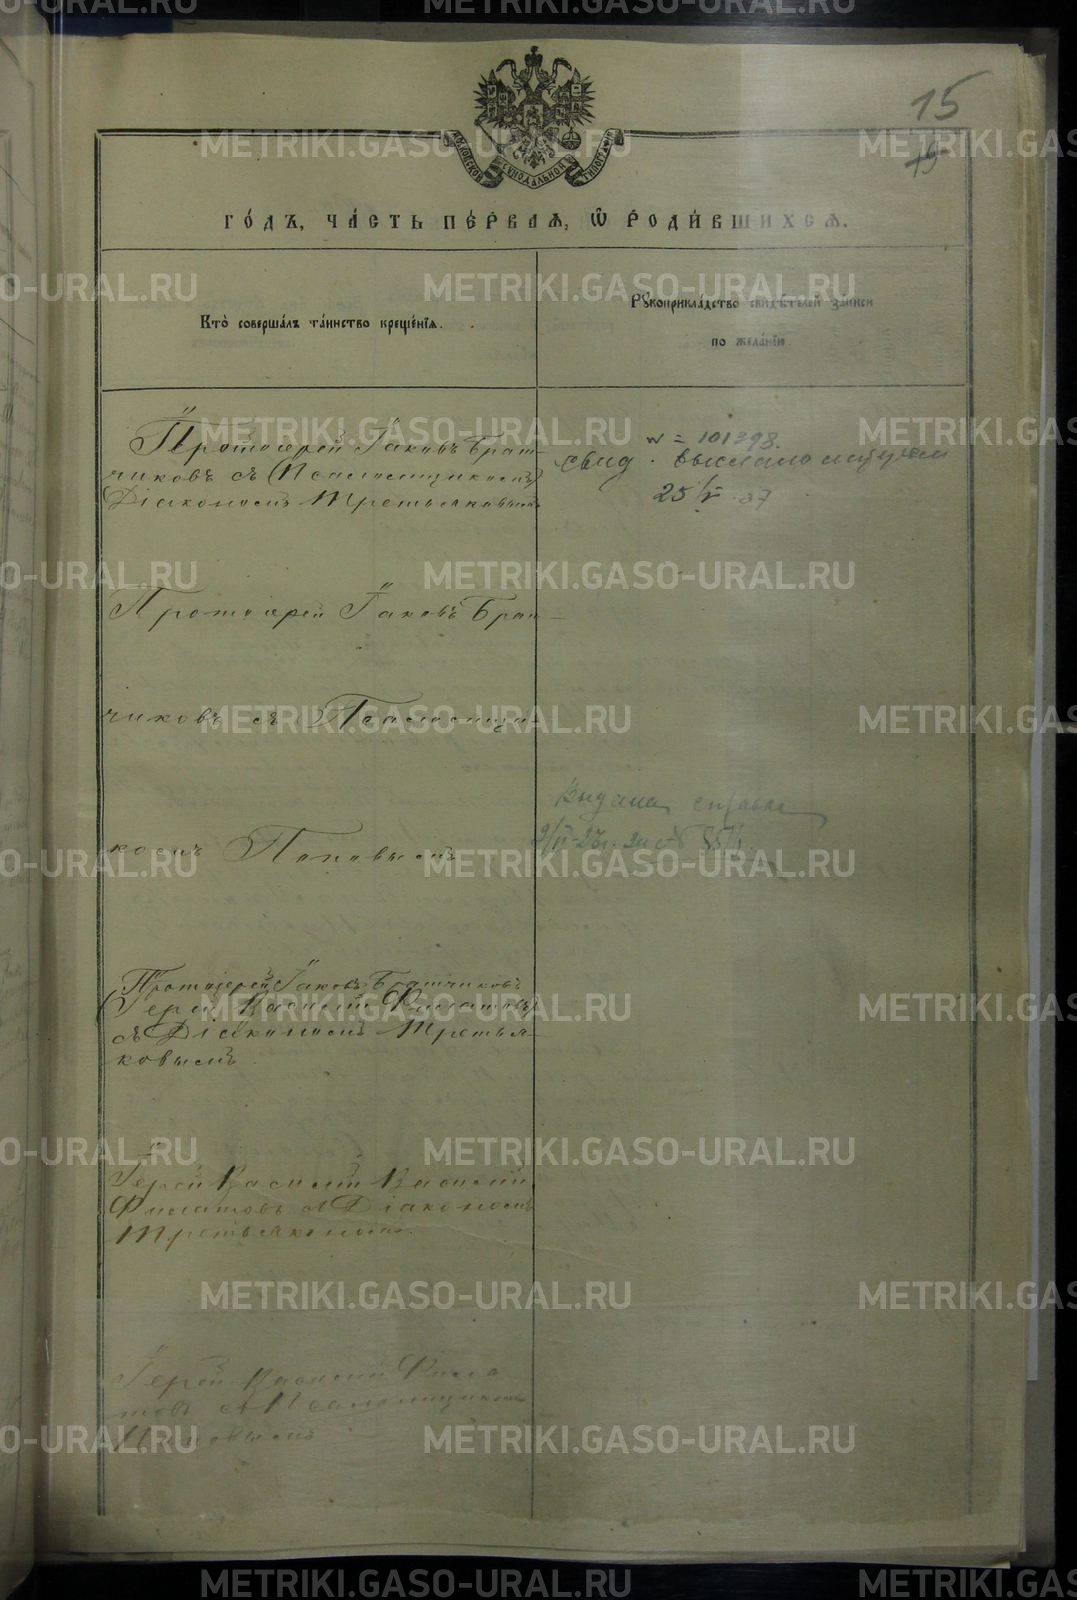 METRIKI.GASO-URAL.RU
15
15
МОСКОВСКОЙ СѴНОДАЛЬНОЙ ТИПОГРАФІИ
ГО́ДЪ, ЧА́СТЬ ПЕ́РВАѦ, Ѡ҆ РОДИ́ВШИХСѦ.
Кто̀ соверша́лъ та́инство креще́нїѧ.
Рꙋкоприкла́дство свидѣ́телей за́писи
по жела́нїю.
Протоіерей Іаковъ Брат-
чиковъ съ (Псаломщикомъ)
Діакономъ Третьяковымъ
№ = 101398.
свид. выслано
25/V 37
Протоіерей Іаковъ Брат-
чиковъ съ Псаломщи-
комъ Поповымъ
Выдана справка
Протоіерей Іаковъ Братчиковъ
(Іерей Василій Филатовъ)
съ Діакономъ Третья-
ковымъ.
Іерей Василій Василій
Филатовъ съ Діакономъ
Третьяковымъ.
Іерей Василій Фила
товъ съ Псаломщикомъ
Поповымъ